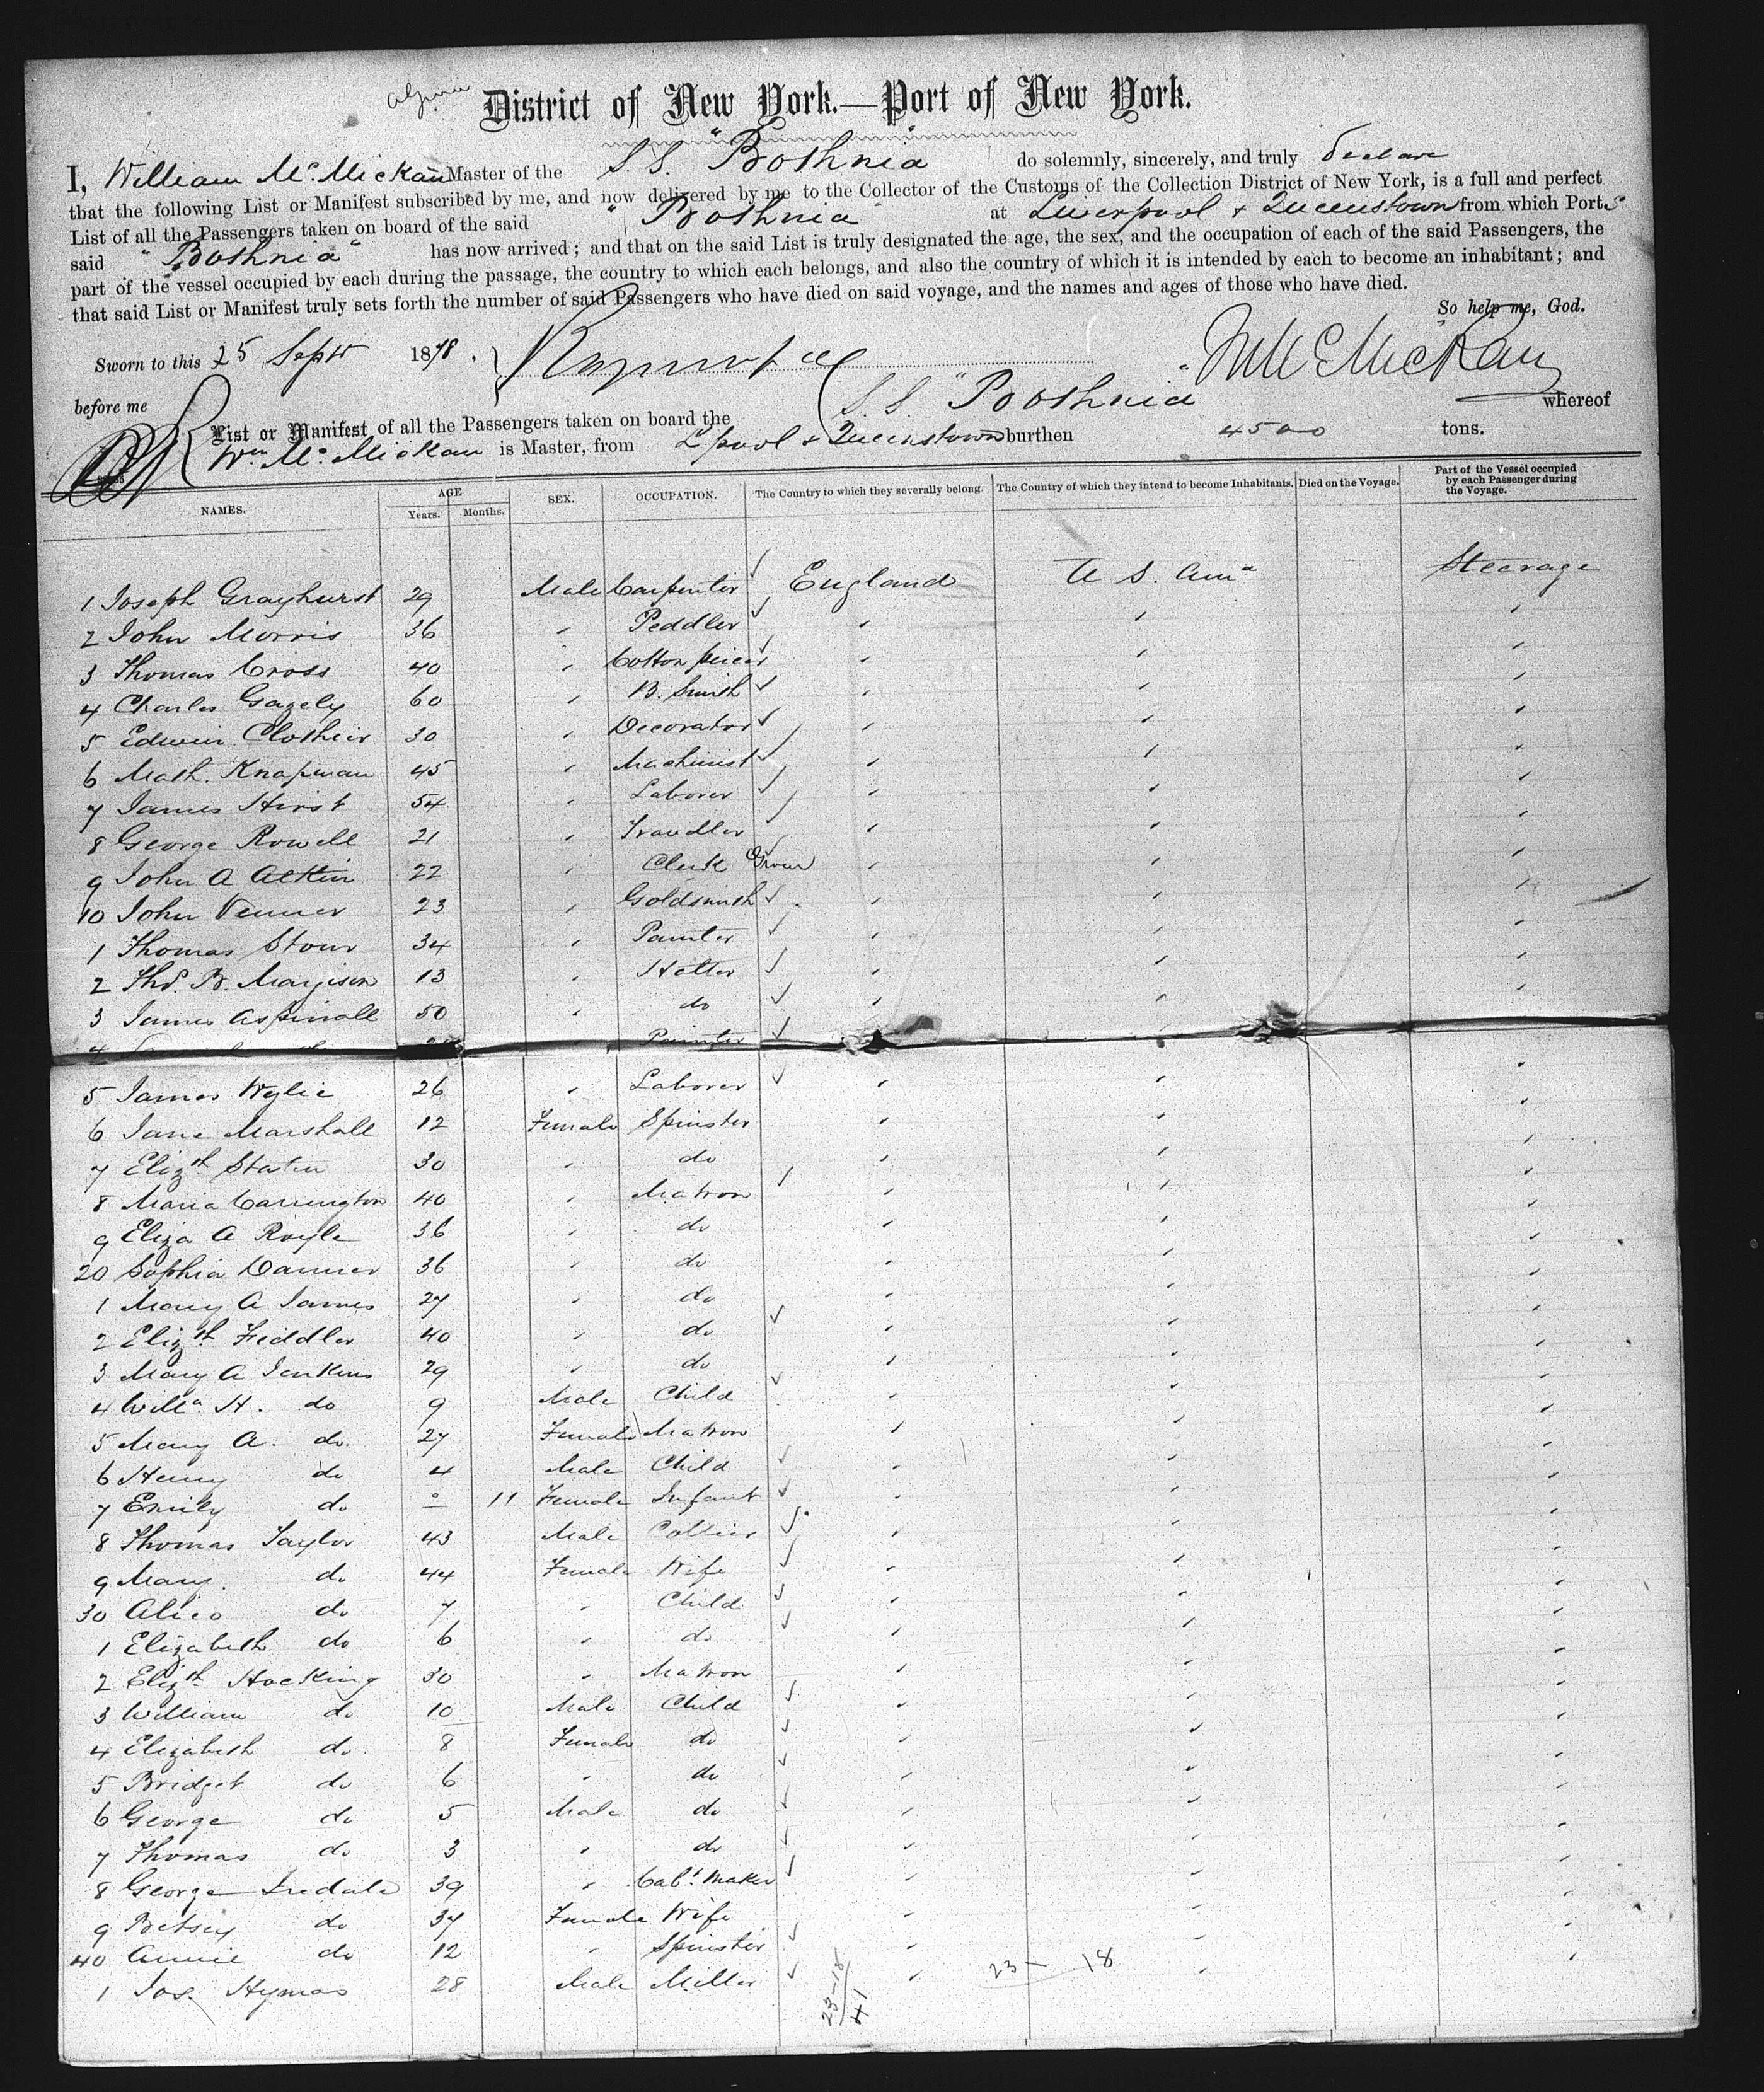 District of New York.—Port of New York.
I, William McMickan Master of the S.S. "Bothnia" do solemnly, sincerely, and truly declare
that the following List or Manifest subscribed by me, and now delivered by me to the Collector of the Customs of the Collection District of New York, is a full and perfect
List of all the Passengers taken on board of the said "Bothnia" at Liverpool + Queenstown from which Ports
said "Bothnia" has now arrived; and that on the said List is truly designated the age, the sex, and the occupation of each of the said Passengers, the
part of the vessel occupied by each during the passage, the country to which each belongs, and also the country of which it is intended by each to become an inhabitant; and
that said List or Manifest truly sets forth the number of said Passengers who have died on said voyage, and the names and ages of those who have died.
So help me, God.
Sworn to this 25 Sept 1878. W McMickan
before me
List or Manifest of all the Passengers taken on board the S.S. "Bothnia" whereof
Wm McMickan is Master, from L'pool + Queenstown burthen 4500 tons.
NAMES. AGE Years. Months. SEX. OCCUPATION. The Country to which they severally belong. The Country of which they intend to become Inhabitants. Died on the Voyage. Part of the Vessel occupied by each Passenger during the Voyage.
1 Joseph Grayhurst 29 Male Carpenter England U S. Ama Steerage
2 John Morris 36 " Peddler " " "
3 Thomas Cross 40 " Cotton piecer " " "
4 Charles Gazely 60 " B. Smith " " "
5 Edwin Clothier 30 " Decorator " " "
6 Math. Knapman 45 " Machinist " " "
7 James Hirst 54 " Laborer " " "
8 George Rowell 21 " Traveller " " "
9 John A Atkin 22 " Clerk " " "
10 John Venner 23 " Goldsmith " " "
1 Thomas Stour 34 " Painter " " "
2 Thos. B. Margison 13 " Hatter " " "
3 James Aspinall 50 " do " " "
4 Painter
5 James Wylie 26 " Laborer " " "
6 Jane Marshall 12 Female Spinster " " "
7 Elizth Staten 30 " do " " "
8 Maria Carrington 40 " Matron " " "
9 Eliza A Royle 36 " do " " "
20 Sophia Danner 36 " do " " "
1 Mary A James 27 " do " " "
2 Elizth Fiddler 40 " do " " "
3 Mary A Jenkins 29 " do " " "
4 Willm H. do 9 Male Child " " "
5 Mary A. do 27 Female Matron " " "
6 Henry do 4 Male Child " " "
7 Emily do 11 Female Infant " " "
8 Thomas Taylor 43 Male Collier " " "
9 Mary do 44 Female Wife " " "
30 Alice do 7 " Child " " "
1 Elizabeth do 6 " do " " "
2 Elizth Hocking 30 " Matron " " "
3 William do 10 Male Child " " "
4 Elizabeth do 8 Female do " " "
5 Bridget do 6 " do " " "
6 George do 5 Male do " " "
7 Thomas do 3 " do " " "
8 George Iredale 39 " Cabt Maker " " "
9 Betsey do 37 Female Wife " " "
40 Annie do 12 " Spinster " " "
1 Jos. Hymas 28 Male Miller " " "
23 – 18
23–18
41